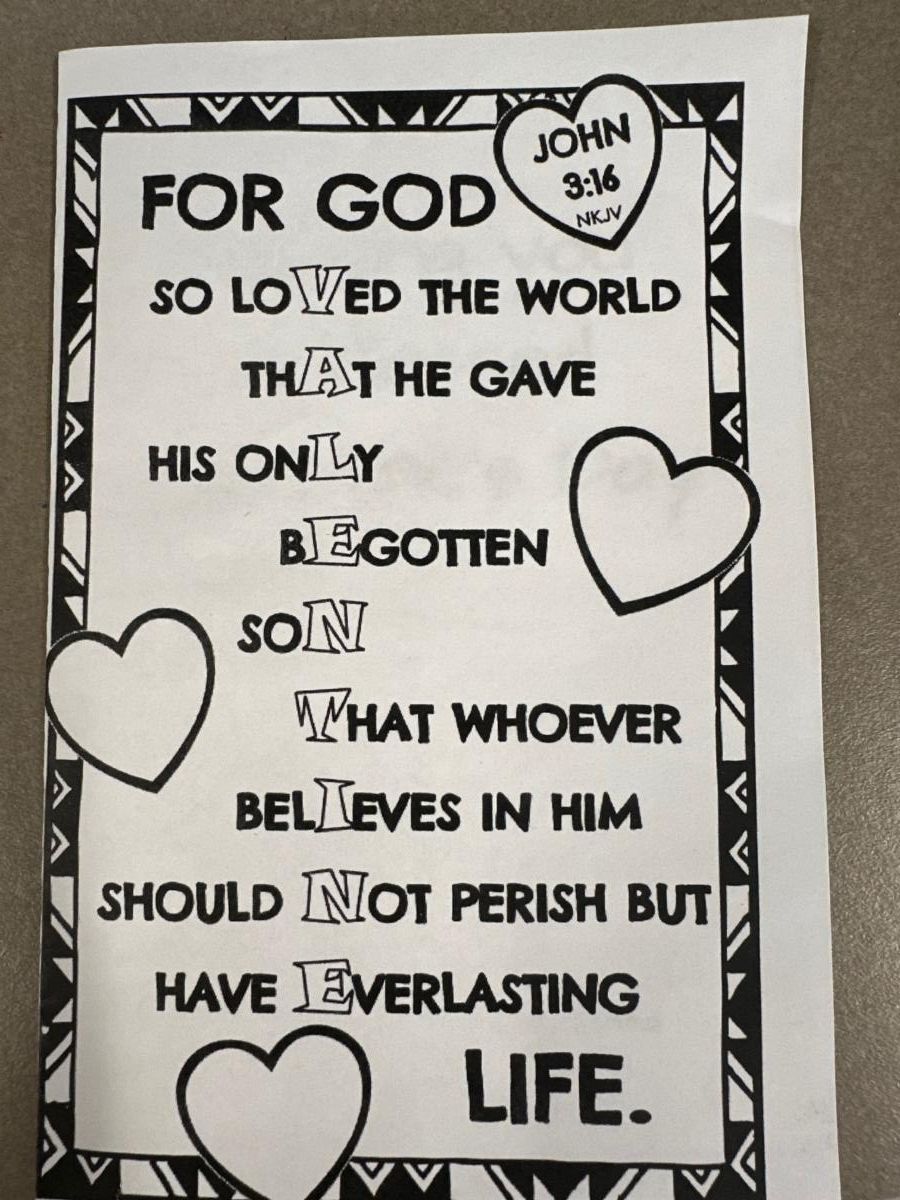 JOHN
3:16
NKJV
FOR GOD
SO LOVED THE WORLD
THAT HE GAVE
HIS ONLY
BEGOTTEN
SON
THAT WHOEVER
BELIEVES IN HIM
SHOULD NOT PERISH BUT
HAVE EVERLASTING
LIFE.